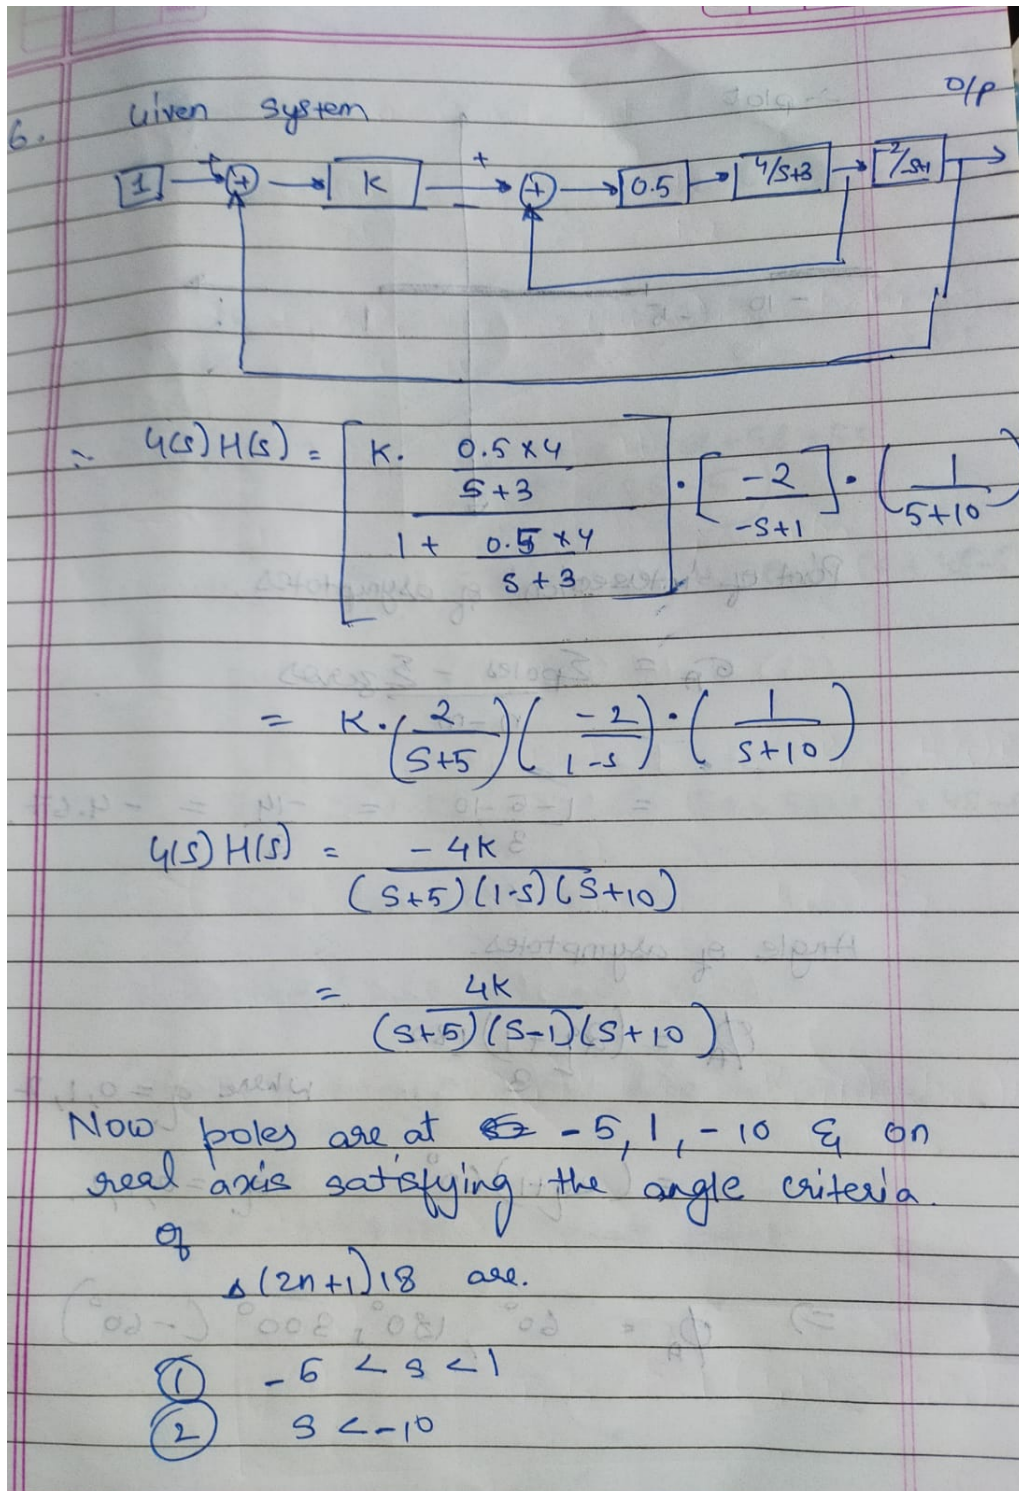 6. Given system
O/P
1 + + K + + 0.5 4/s+3 -2/s+1
∴ G(s) H(s) = [ K. (0.5 x 4 / s+3) / (1 + (0.5 x 4 / s+3)) ] . [ -2 / -s+1 ] . ( 1 / s+10 )
= K . ( 2 / s+5 ) ( -2 / 1-s ) . ( 1 / s+10 )
G(s) H(s) = -4K / (s+5) (1-s) (s+10)
= 4K / (s+5) (s-1) (s+10)
Now poles are at -5, 1, -10 & on
real axis satisfying the angle criteria.
of
(2n+1)18 are.
① -5 < s < 1
② s < -10